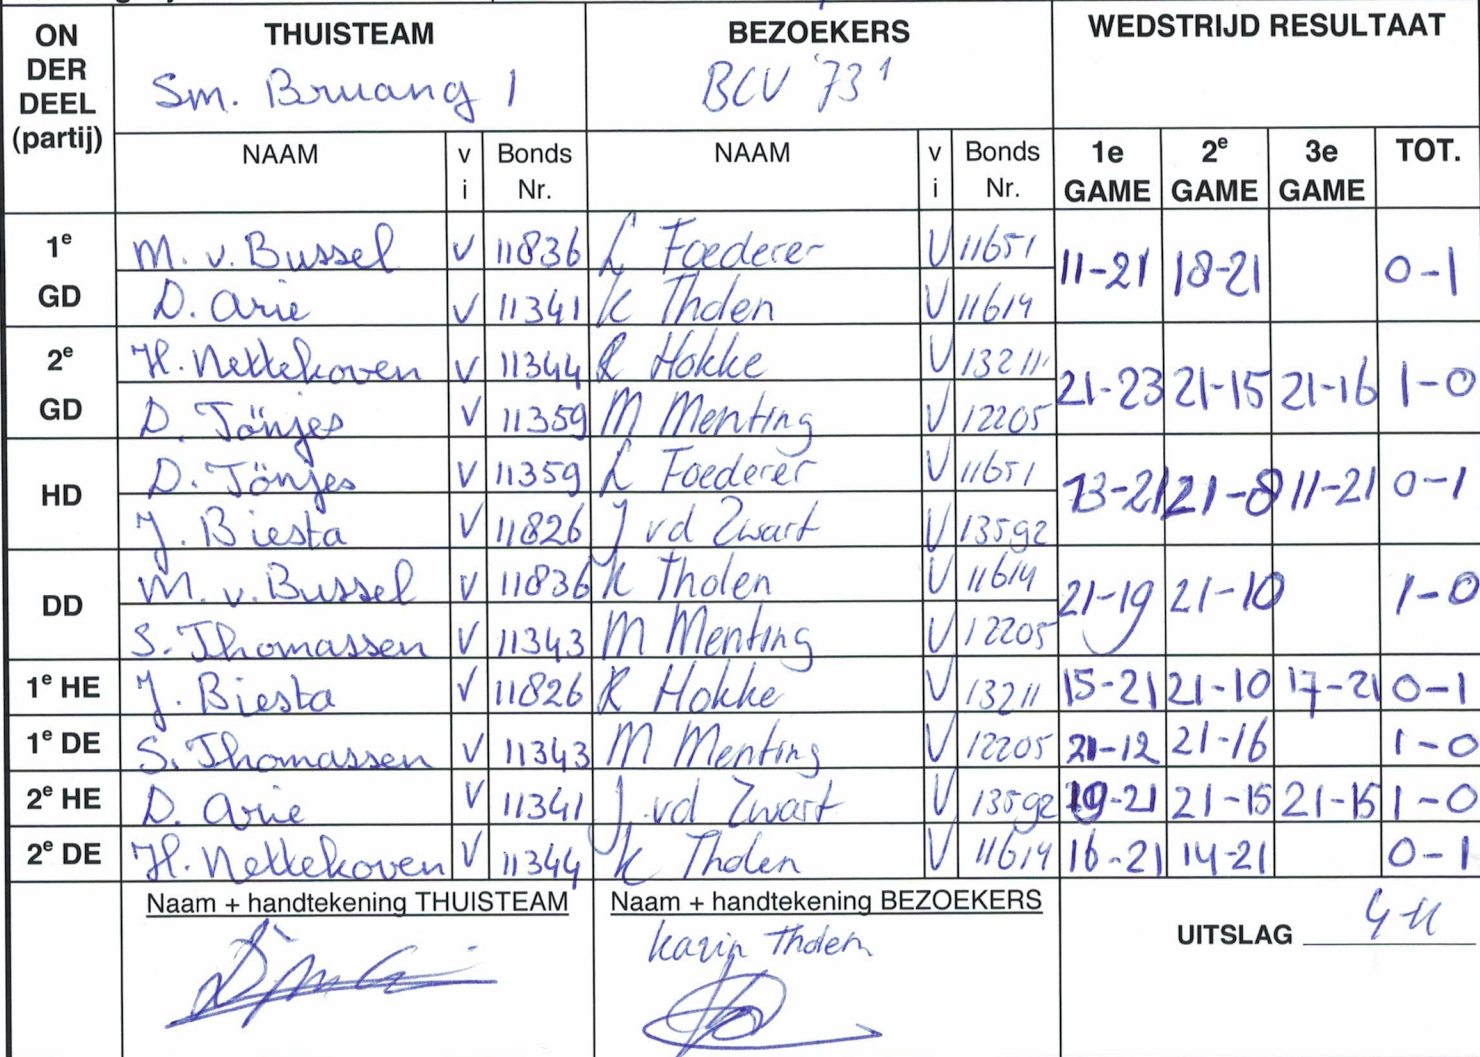 ON DER DEEL (partij) THUISTEAM BEZOEKERS WEDSTRIJD RESULTAAT
Sm. Bruang 1 BCV '73 1
NAAM v i Bonds Nr. NAAM v i Bonds Nr. 1e GAME 2e GAME 3e GAME TOT.
1e GD M. v. Bussel V 11836 L Foederer V 11651 11-21 18-21 0-1
D. Arie V 11341 K Tholen V 11614
2e GD H. Nettekoven V 11344 R Hokke V 13211 21-23 21-15 21-16 1-0
D. Tönjes V 11359 M Menting V 12205
HD D. Tönjes V 11359 L Foederer V 11651 13-21 21-8 11-21 0-1
J. Biesta V 11826 J vd Zwart V 13592
DD M. v. Bussel V 11836 K Tholen V 11614 21-19 21-10 1-0
S. Thomassen V 11343 M Menting V 12205
1e HE J. Biesta V 11826 R Hokke V 13211 15-21 21-10 17-21 0-1
1e DE S. Thomassen V 11343 M Menting V 12205 21-12 21-16 1-0
2e HE D. Arie V 11341 J. vd Zwart V 13592 19-21 21-15 21-15 1-0
2e DE H. Nettekoven V 11344 K Tholen V 11614 16-21 14-21 0-1
Naam + handtekening THUISTEAM Naam + handtekening BEZOEKERS
Karin Tholen
UITSLAG 4-4